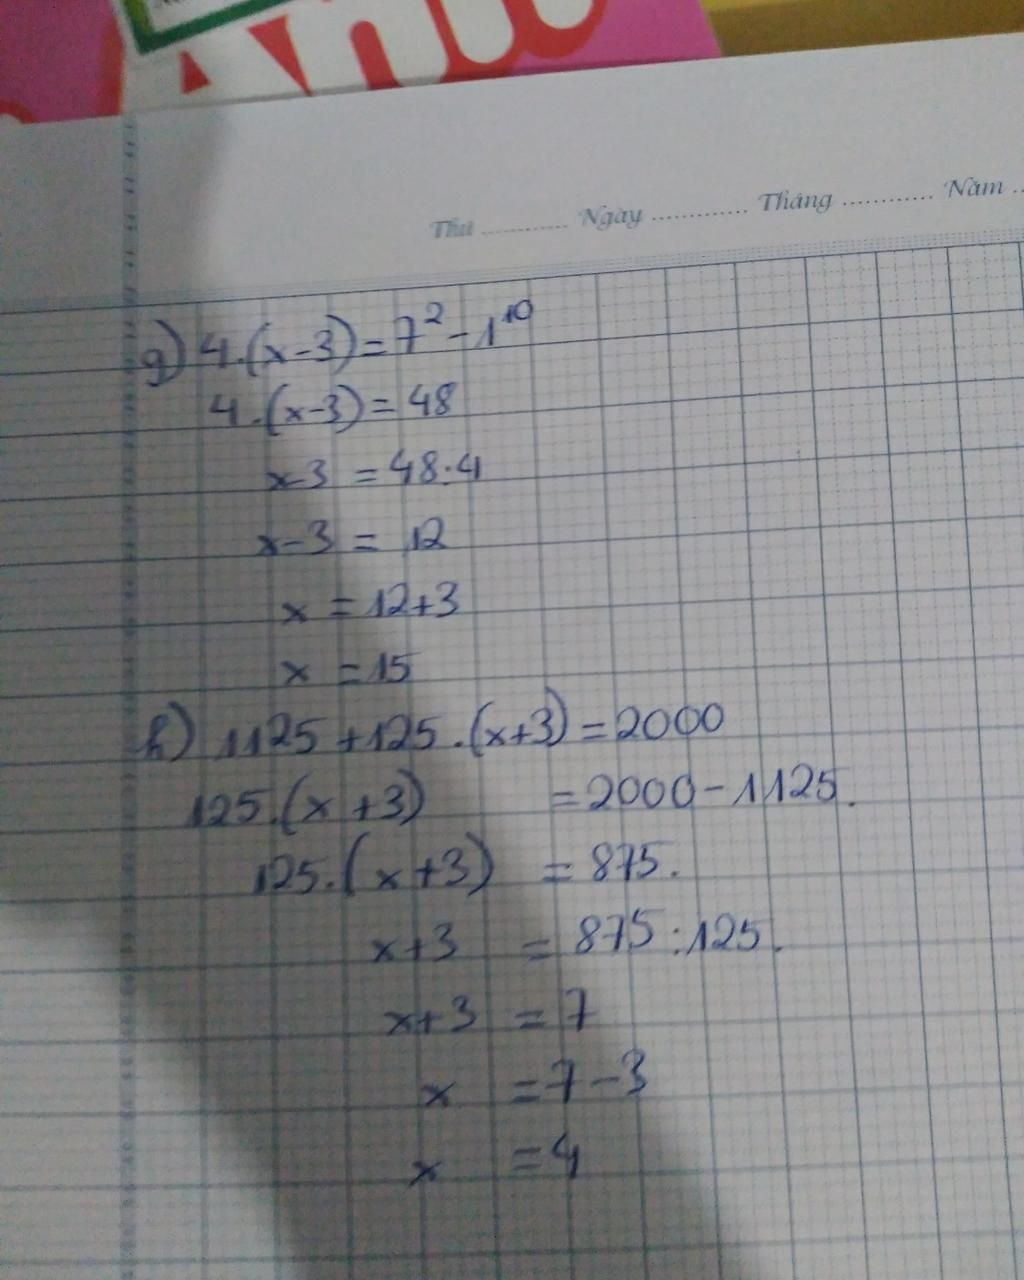 Thứ ............ Ngày ............. Tháng ............ Năm ..
g) 4.(x-3)=7²-1¹⁰
4.(x-3)=48
x-3 =48:4
x-3 = 12
x =12+3
x =15
h) 1125+125.(x+3)=2000
125.(x+3) =2000-1125.
125.(x+3) = 875.
x+3 = 875:125.
x+3 =7
x =7-3
x =4